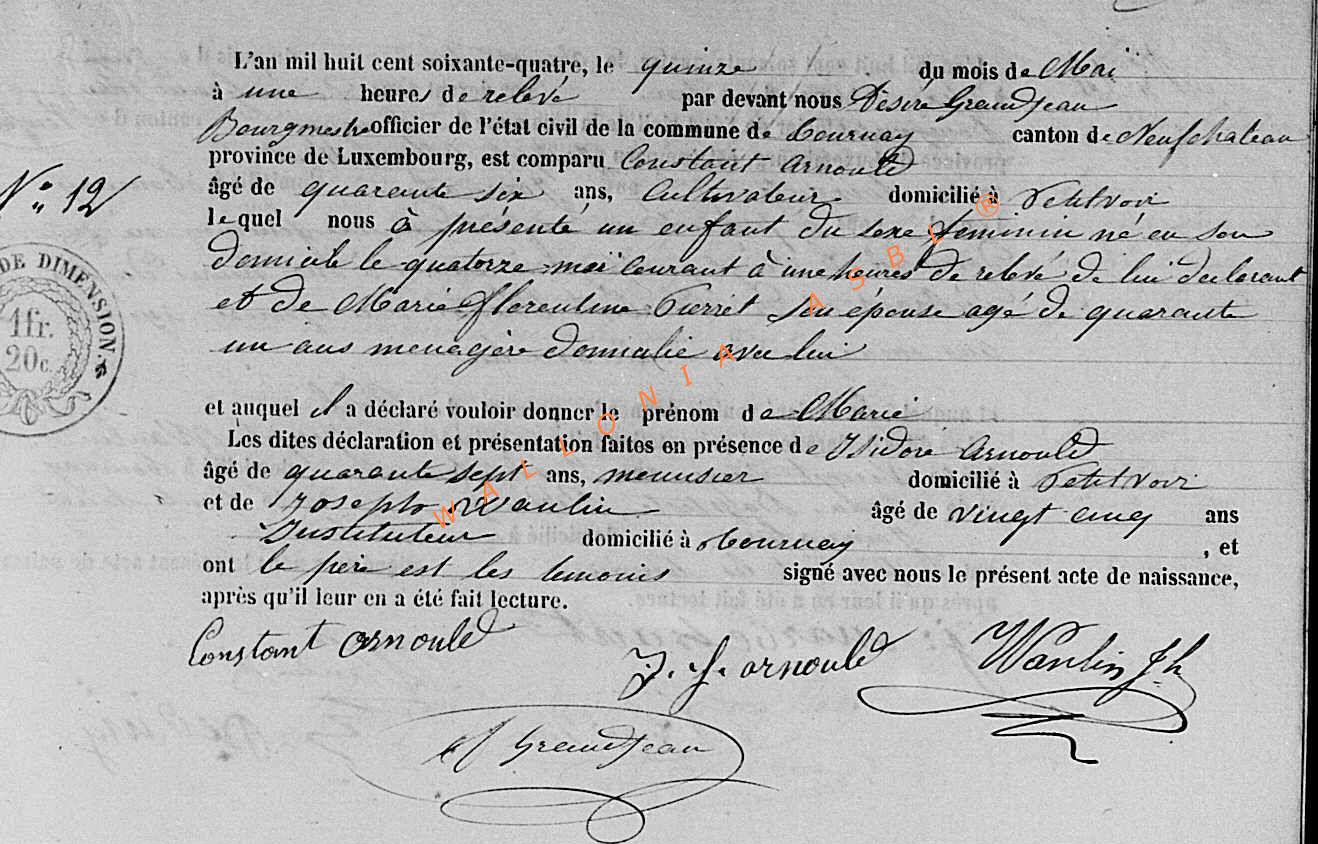 L'an mil huit cent soixante-quatre, le quinze du mois de Mai
à une heures de relevé par devant nous Désiré Grandjean
Bourgmestre officier de l'état civil de la commune de Tournay canton de Neufchateau
province de Luxembourg, est comparu Constant Arnould
âgé de quarante six ans, Cultivateur domicilié à Petitvoir
N° 12
lequel nous à présenté un enfant du sexe feminin né en son
domicile le quatorze mai courant à une heures de relevé de lui declarant
et de Marie Florentine Pierret son épouse agé de quarante
un ans menagère domicilie avec lui
DE DIMENSION.
1fr.
20c.
et auquel il a déclaré vouloir donner le prénom de Marie
Les dites déclaration et présentation faites en présence de Isidore Arnould
âgé de quarante sept ans, meunier domicilié à Petitvoir
et de Joseph Wautin âgé de vingt cinq ans
Instituteur domicilié à Tournay , et
ont le père est les temoins signé avec nous le présent acte de naissance,
après qu'il leur en a été fait lecture.
Constant Arnould
J. J. arnould
Wautin Jh
Grandjean
WALLONIA ASBL ®